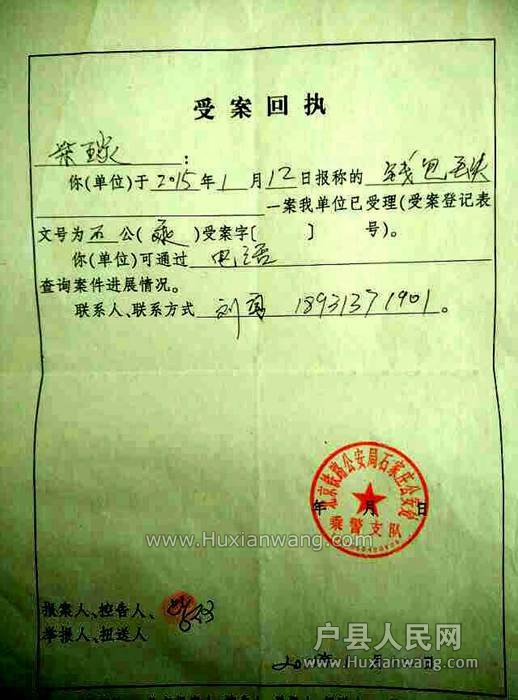 受案回执
：
你(单位)于2015年1月12日报称的钱包丢失
一案我单位已受理(受案登记表
文号为石公(乘)受案字〔　　〕　　号)。
你(单位)可通过电话
查询案件进展情况。
联系人、联系方式刘 18931371901。
北京铁路公安局石家庄公安处
年 月 日
乘警支队
www.Huxianwang.com
报案人、控告人、
举报人、扭送人
户县人民网
www.Huxianwang.com